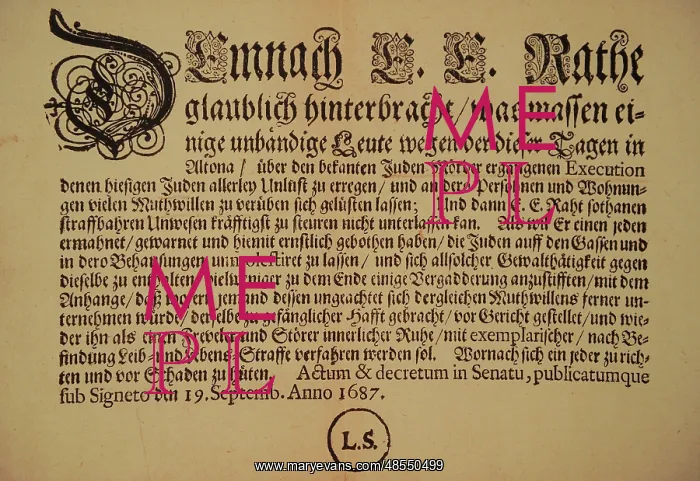 DEmnach E. E. Rathe
glaublich hinterbracht / was massen ei-
nige unbändige Leute wegen der dieser Tagen in
Altona / über den bekanten Juden Mörder ergangenen Execution
denen hiesigen Juden allerley Unlust zu erregen / und an deren Persohnen und Wohnun-
gen vielen Muthwillen zu verüben sich gelüsten lassen; Und dann E. E. Raht sothanen
straffbahren Unwesen kräfftigst zu steuren nicht unterlassen kan. Als wil Er einen jeden
ermahnet / gewarnet und hiemit ernstlich gebothen haben / die Juden auff den Gassen und
in dero Behausungen unmolestiret zu lassen / und sich allsolcher Gewalthätigkeit gegen
dieselbe zu enthalten / vielweniger zu dem Ende einige Vergadderung anzustifften / mit dem
Anhange / daß wofern jemand dessen ungeachtet sich dergleichen Muthwillens ferner un-
ternehmen würde / derselbe zu gefänglicher Hafft gebracht / vor Gericht gestellet / und wie-
der ihn als einen Frevler und Störer innerlicher Ruhe / mit exemplarischer / nach Be-
findung Leib- und Lebens-Straffe verfahren werden sol. Wornach sich ein jeder zu rich-
ten und vor Schaden zu hüten. Actum & decretum in Senatu, publicatumque
sub Signeto den 19. Septemb. Anno 1687.
L.S.
ME
PL
ME
PL
www.maryevans.com/48550499